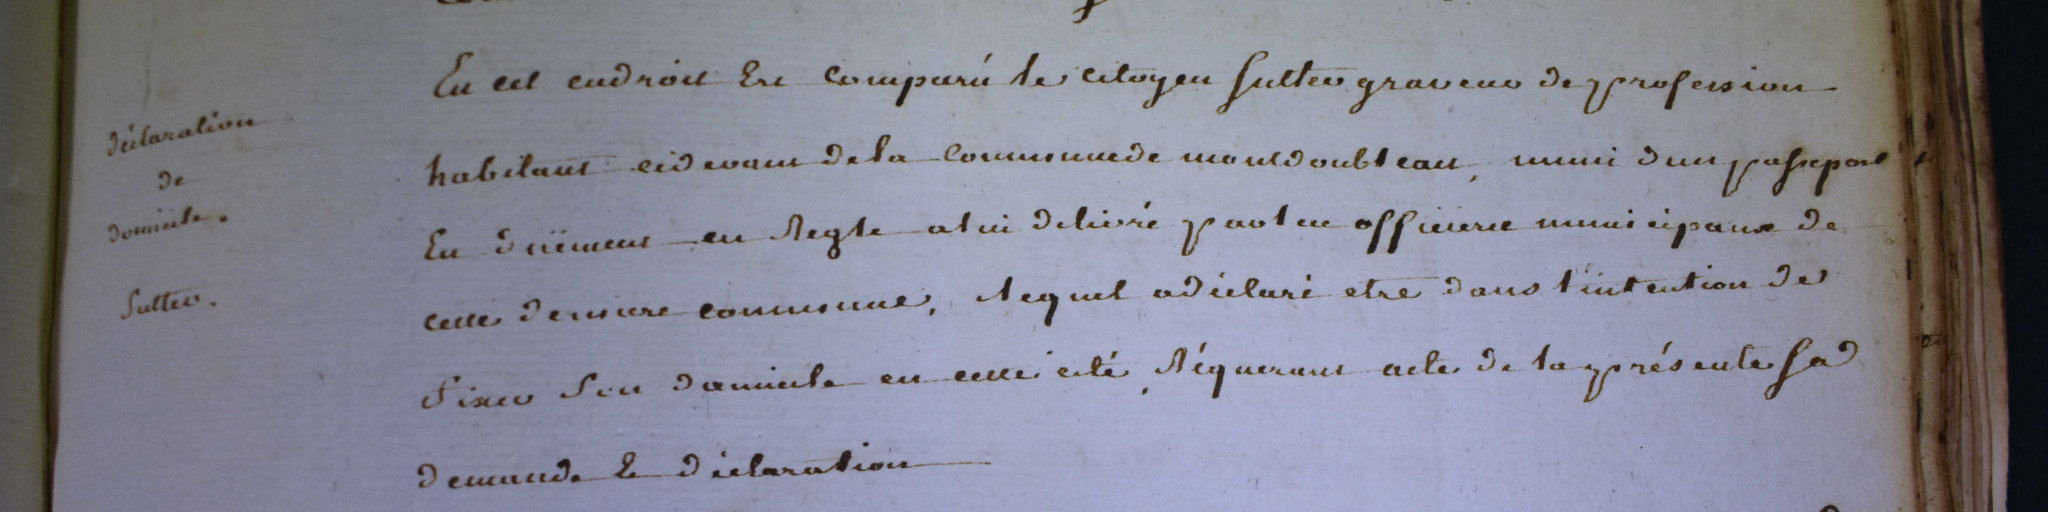 déclaration
de
domicile.
Sulter.
En cet endroit Est comparu le citoyen Sulter graveur de profession
habitant cidevant dela commune de montdoubleau, muni dun passeport
En dûement en Regle a lui délivré par les officiers municipaux de
cette derniere commune, lequel a déclaré etre dans l'intention de
fixer son domicile en cette cité, Réquerant acte de la présente sad
demande & déclaration